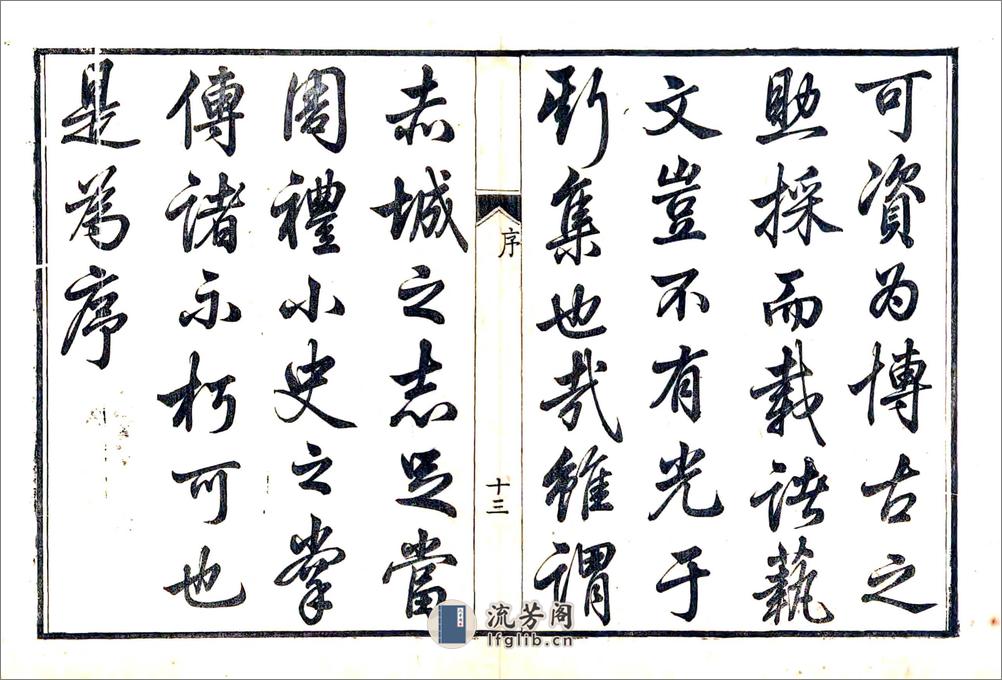 可資为博古之
助採而載諸藝
文豈不有光于
斯集也哉雖謂
序
十三
赤城之志足當
周禮小史之掌
傳諸不朽可也
是為序
流芳阁
lfglib.cn